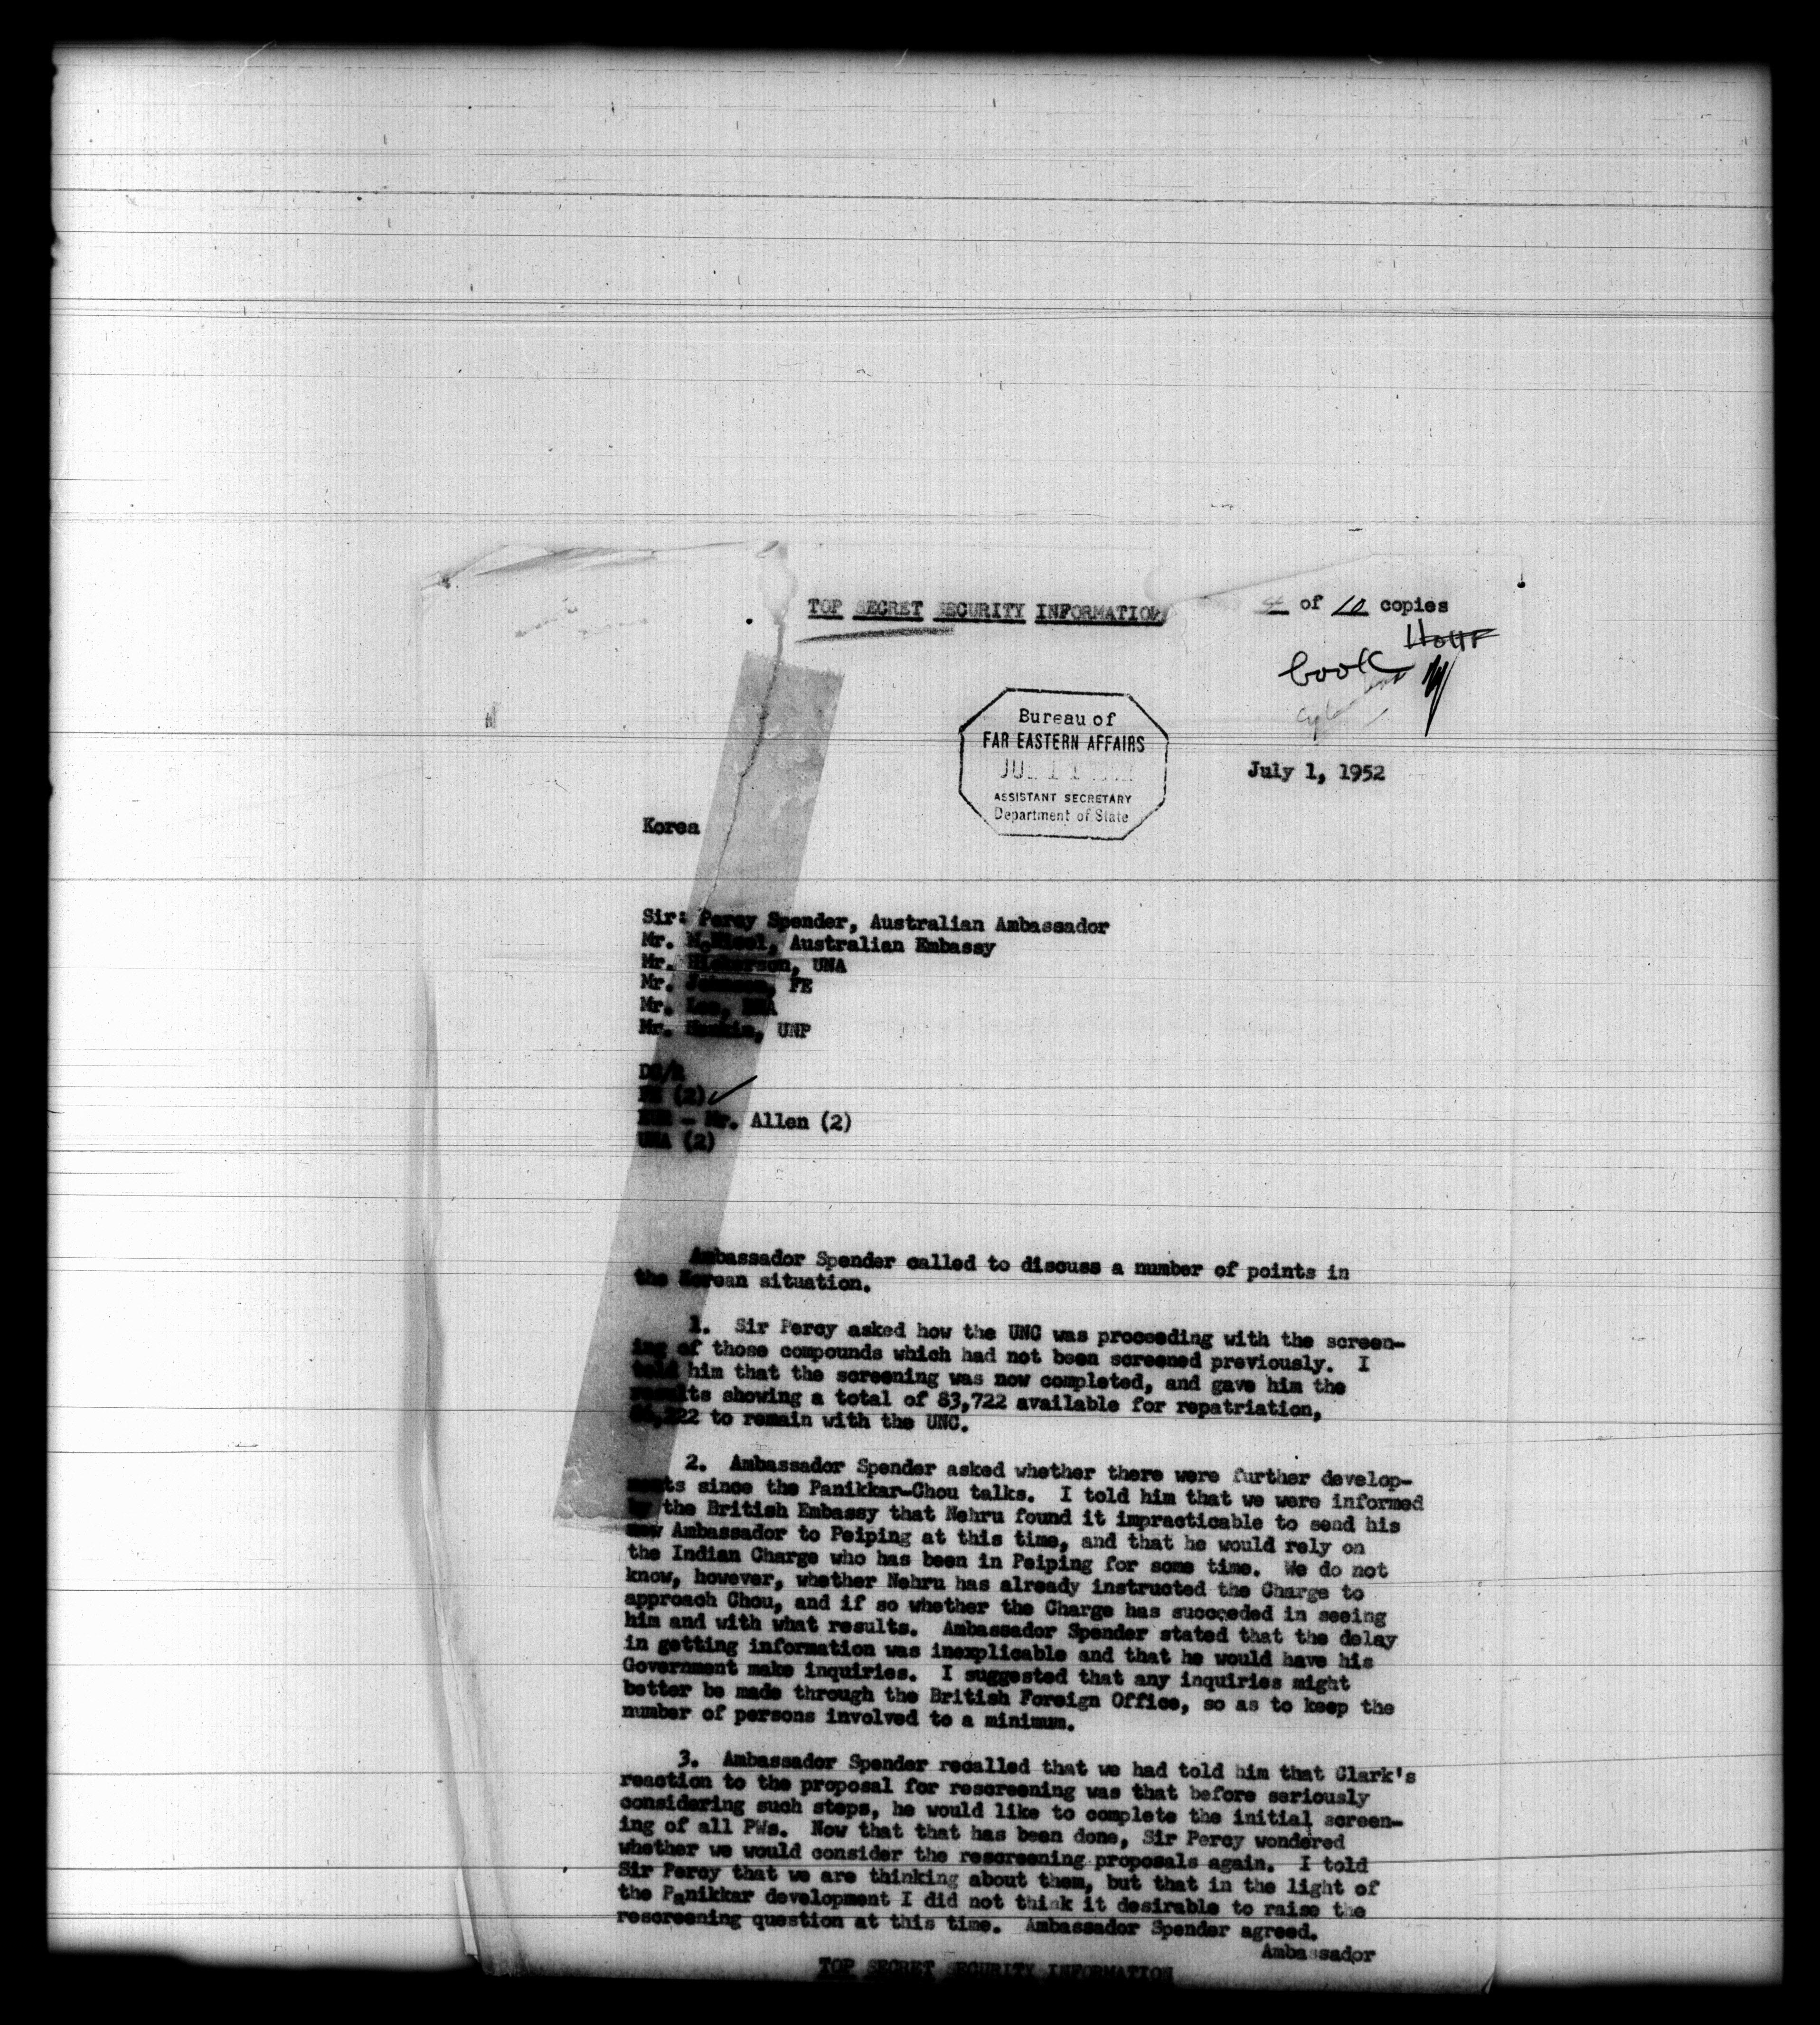 TOP SECRET SECURITY INFORMATION
4 of 10 copies
book
Bureau of
FAR EASTERN AFFAIRS
ASSISTANT SECRETARY
Department of State
July 1, 1952
Korea
Sir: Percy Spender, Australian Ambassador
Mr. McNicol, Australian Embassy
Mr. Hickerson, UNA
Mr. Johnson, FE
Mr.
Mr. UNP
FE (2)
EUR - Mr. Allen (2)
UNA (2)
Ambassador Spender called to discuss a number of points in
the Korean situation.
1. Sir Percy asked how the UNC was proceeding with the screen-
ing of those compounds which had not been screened previously. I
told him that the screening was now completed, and gave him the
results showing a total of 83,722 available for repatriation,
to remain with the UNC.
2. Ambassador Spender asked whether there were further develop-
ments since the Panikkar-Chou talks. I told him that we were informed
by the British Embassy that Nehru found it impracticable to send his
new Ambassador to Peiping at this time, and that he would rely on
the Indian Charge who has been in Peiping for some time. We do not
know, however, whether Nehru has already instructed the Charge to
approach Chou, and if so whether the Charge has succeeded in seeing
him and with what results. Ambassador Spender stated that the delay
in getting information was inexplicable and that he would have his
Government make inquiries. I suggested that any inquiries might
better be made through the British Foreign Office, so as to keep the
number of persons involved to a minimum.
3. Ambassador Spender recalled that we had told him that Clark's
reaction to the proposal for rescreening was that before seriously
considering such steps, he would like to complete the initial screen-
ing of all PWs. Now that that has been done, Sir Percy wondered
whether we would consider the rescreening proposals again. I told
Sir Percy that we are thinking about them, but that in the light of
the Panikkar development I did not think it desirable to raise the
rescreening question at this time. Ambassador Spender agreed.
Ambassador
TOP SECRET SECURITY INFORMATION